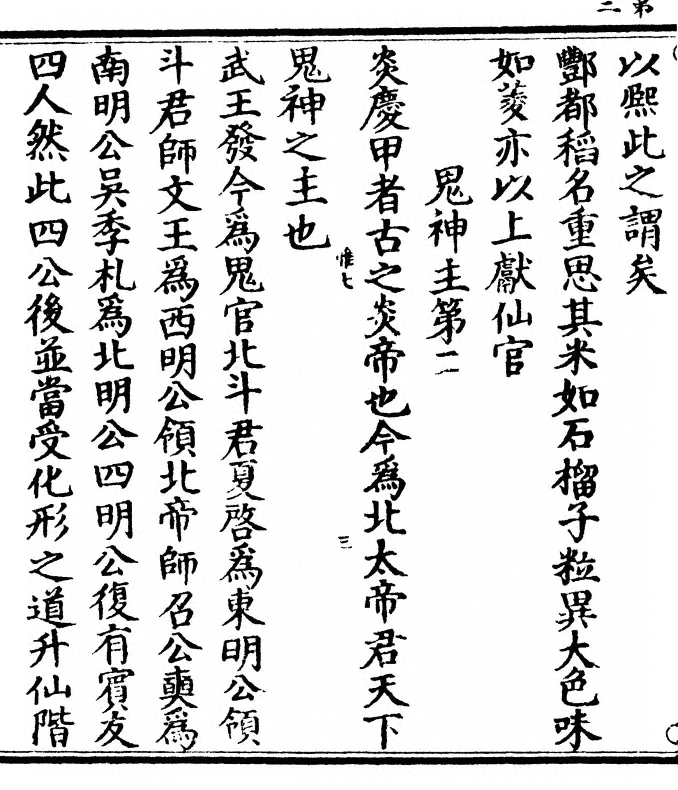 弟二
以熙此之謂矣
酆都稻名重思其米如石榴子粒異大色味
如菱亦以上獻仙官
鬼神主第二
炎慶甲者古之炎帝也今爲北太帝君天下
惟七
三
鬼神之主也
武王發今爲鬼官北斗君夏啓爲東明公領
斗君師文王爲西明公領北帝師召公奭爲
南明公吳季札爲北明公四明公復有賓友
四人然此四公後並當受化形之道升仙階